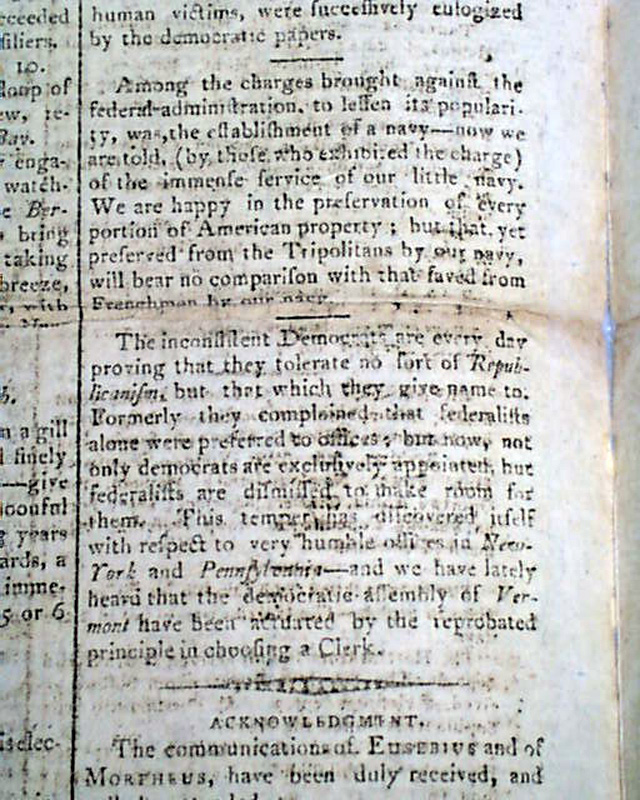 ceeded
siliers.
10.
loop of
ew, re-
Bay.
enga-
watch-
e Ber-
bring
taking
breeze,
with
m a gill
finely
—give
poonful
years
ards, a
imme-
5 or 6
selec-
human victims, were ſucceſſively eulogized
by the democratic papers.
Among the charges brought againſt the
federal-adminiſtration, to leſſen its populari-
ty, was, the eſtabliſhment of a navy—now we
are told, (by thoſe who exhibited the charge)
of the immenſe ſervice of our little navy.
We are happy in the preſervation of every
portion of American property ; but that yet
preſerved from the Tripolitans by our navy,
will bear no compariſon with that ſaved from
Frenchmen by our navy.
The inconſiſtent Democrats are every day
proving that they tolerate no ſort of Repub-
licaniſm, but that which they give name to.
Formerly they complained that federaliſts
alone were preferred to offices ; but now, not
only democrats are excluſively appointed, but
federaliſts are diſmiſſed to make room for
them. This temper has diſcovered itſelf
with reſpect to very humble offices in New-
York and Pennſylvania—and we have lately
heard that the democratic aſſembly of Ver-
mont have been actuated by the reprobated
principle in chooſing a Clerk.
ACKNOWLEDGMENT.
The communications of EUSEBIUS and of
MORPHEUS, have been duly received, and